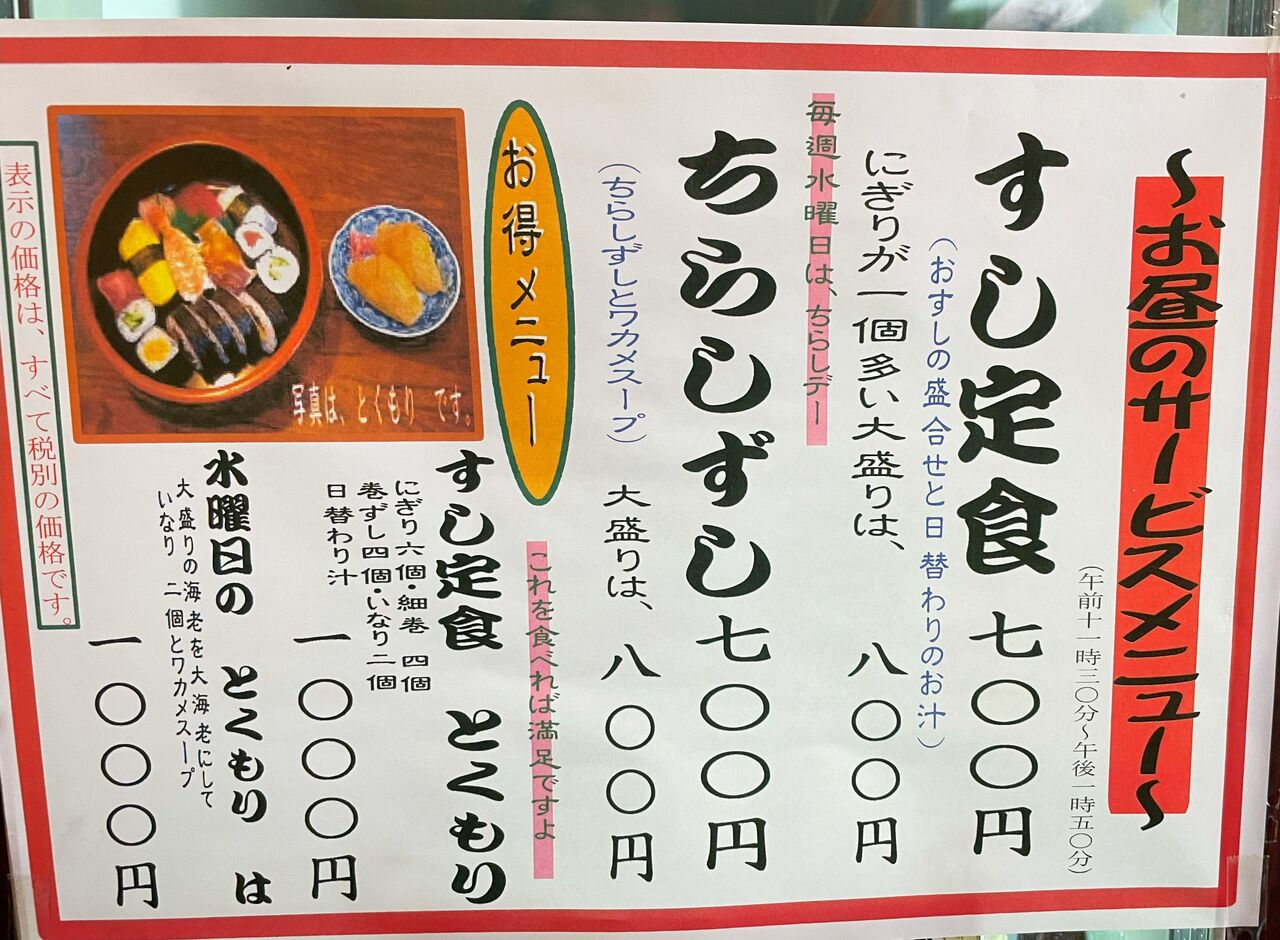 ～お昼のサービスメニュー～
（午前十一時三〇分～午後一時五〇分）
すし定食 七〇〇円
（おすしの盛合せと日替わりのお汁）
にぎりが一個多い大盛りは、 八〇〇円
毎週水曜日は、ちらしデー
ちらしずし 七〇〇円
（ちらしずしとワカメスープ） 大盛りは、 八〇〇円
お得メニュー
これを食べれば満足ですよ
すし定食 とくもり
にぎり六個・細巻 四個
巻ずし四個・いなり二個
日替わり汁
一〇〇〇円
写真は、とくもり です。
水曜日の とくもり は
大盛りの海老を大海老にして
いなり 二個とワカメスープ
一〇〇〇円
表示の価格は、すべて税別の価格です。